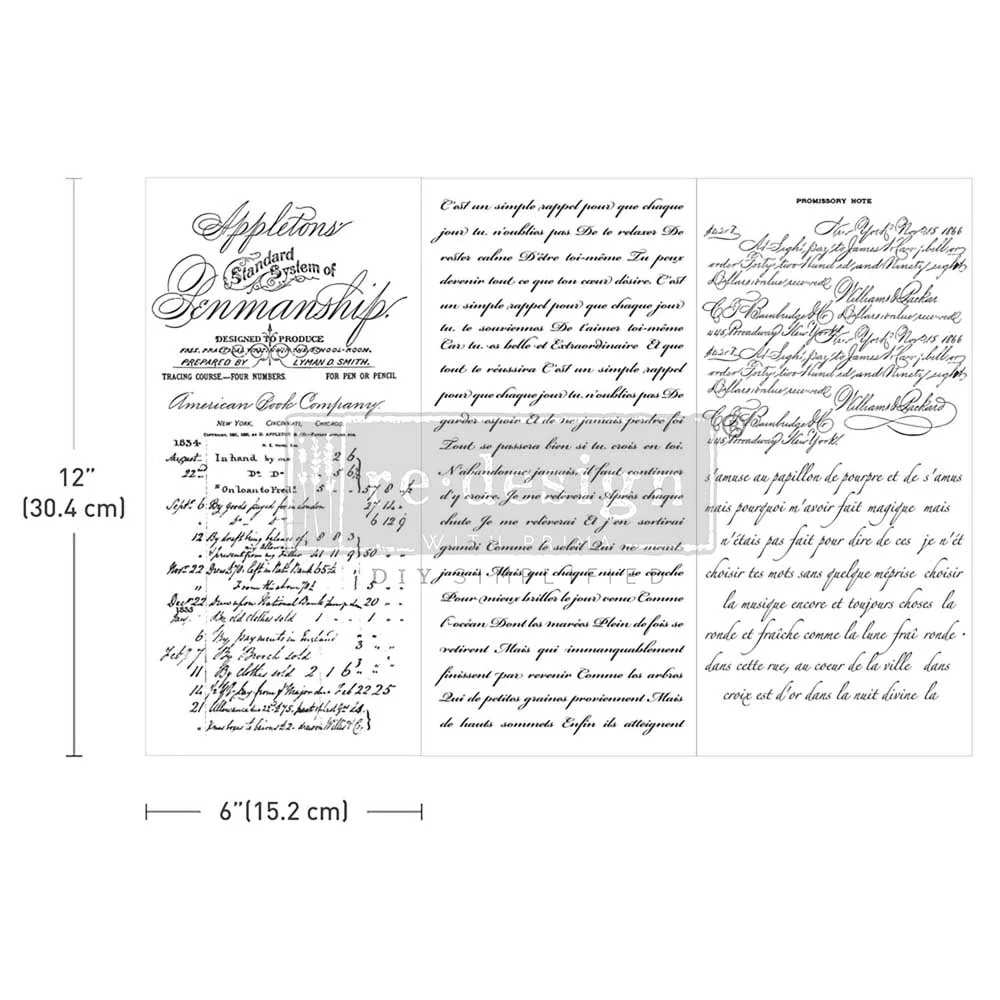 Appletons'
Standard
System of
Penmanship.
DESIGNED TO PRODUCE
FREE, PRACTICAL WRITING IN THE SCHOOL-ROOM.
PREPARED BY LYMAN D. SMITH.
TRACING COURSE—FOUR NUMBERS. FOR PEN OR PENCIL
American Book Company.
NEW YORK, CINCINNATI, CHICAGO.
1834
August In hand by me 2 6
22 Do Do 5 6
" On loan to Fred 5 57 8
Sept 6 By goods payed for in London 27 14
6 12 9
12 By draft being balance of 8 8 3
my allowance
present from my Father 21 11 9 50
Nov 22
5
Decr 22 Drew upon National Bank 20
1835
Jany By old clothes sold 1 1
6 By payments in England 3
Feb 7 7 By Broach sold
11 By clothes sold 2 1 6 3
14 pay from Major due Feb 22 25
21 Allowance
C'est un simple rappel pour que chaque
jour tu n'oublies pas De te relaxer De
rester calme D'être toi-même Tu peux
devenir tout ce que ton cœur désire. C'est
un simple rappel pour que chaque jour
tu te souviennes De t'aimer toi-même
Car tu es belle et Extraordinaire Et que
tout te réussira C'est un simple rappel
pour que chaque jour tu n'oublies pas De
garder espoir Et de ne jamais perdre foi
Tout se passera bien si tu crois en toi.
N'abandonne jamais, il faut continuer
d'y croire. Je me relèverai Après chaque
chute Je me relèverai Et j'en sortirai
grandi Comme le soleil Qui ne meurt
jamais Mais qui chaque nuit se couche
Pour mieux briller le jour venu Comme
l'océan Dont les marées Plein de fois se
retirent Mais qui immanquablement
finissent par revenir Comme les arbres
Qui de petites graines proviennent Mais
de hauts sommets Enfin ils atteignent
PROMISSORY NOTE
New York Nov 15 1866
At Sight, pay to James W Carr, bill or
order Forty, two Hundred, and Ninety, eight
Dollars value received Williams & Packard
C F Bainbridge & Co Dollars value received
445, Broadway New York New York Nov 15 1866
At Sight, pay to James W Carr, bill or
order Forty, two Hundred, and Ninety, eight
Dollars value received
Williams & Packard
C F Bainbridge & Co
445, Broadway New York
s'amuse au papillon de pourpre et de s'amus
mais pourquoi m'avoir fait magique mais
n'étais pas fait pour dire de ces je n'ét
choisir tes mots sans quelque méprise choisir
la musique encore et toujours choses la
ronde et fraîche comme la lune fraî ronde
dans cette rue, au coeur de la ville dans
croix est d'or dans la nuit divine la
re·design
WITH PRIMA
12”
(30.4 cm)
6”(15.2 cm)